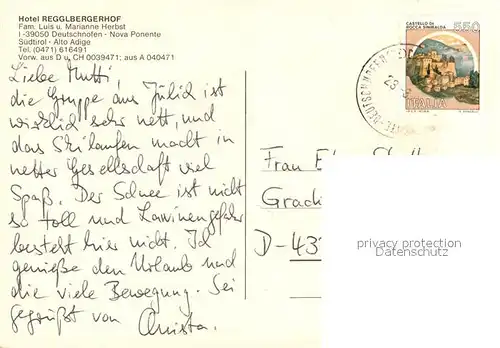 Hotel REGGLBERGERHOF
Fam. Luis u. Marianne Herbst
I-39050 Deutschnofen - Nova Ponente
Südtirol - Alto Adige
Tel. (0471) 616491
Vorw. aus D u. CH 0039471; aus A 040471
Liebe Mutti,
die Gruppe aus Jülich ist
wirklich sehr nett, und
das Skilaufen macht in
netter Gesellschaft viel
Spaß. Der Schnee ist nicht
so toll und Lawinengefahr
besteht hier nicht. Ich
genieße den Urlaub und
die viele Bewegung. Sei
gegrüßt von
CASTELLO DI
ROCCA SINIBALDA
550
ITALIA
Frau
D-43
privacy protection
Datenschutz